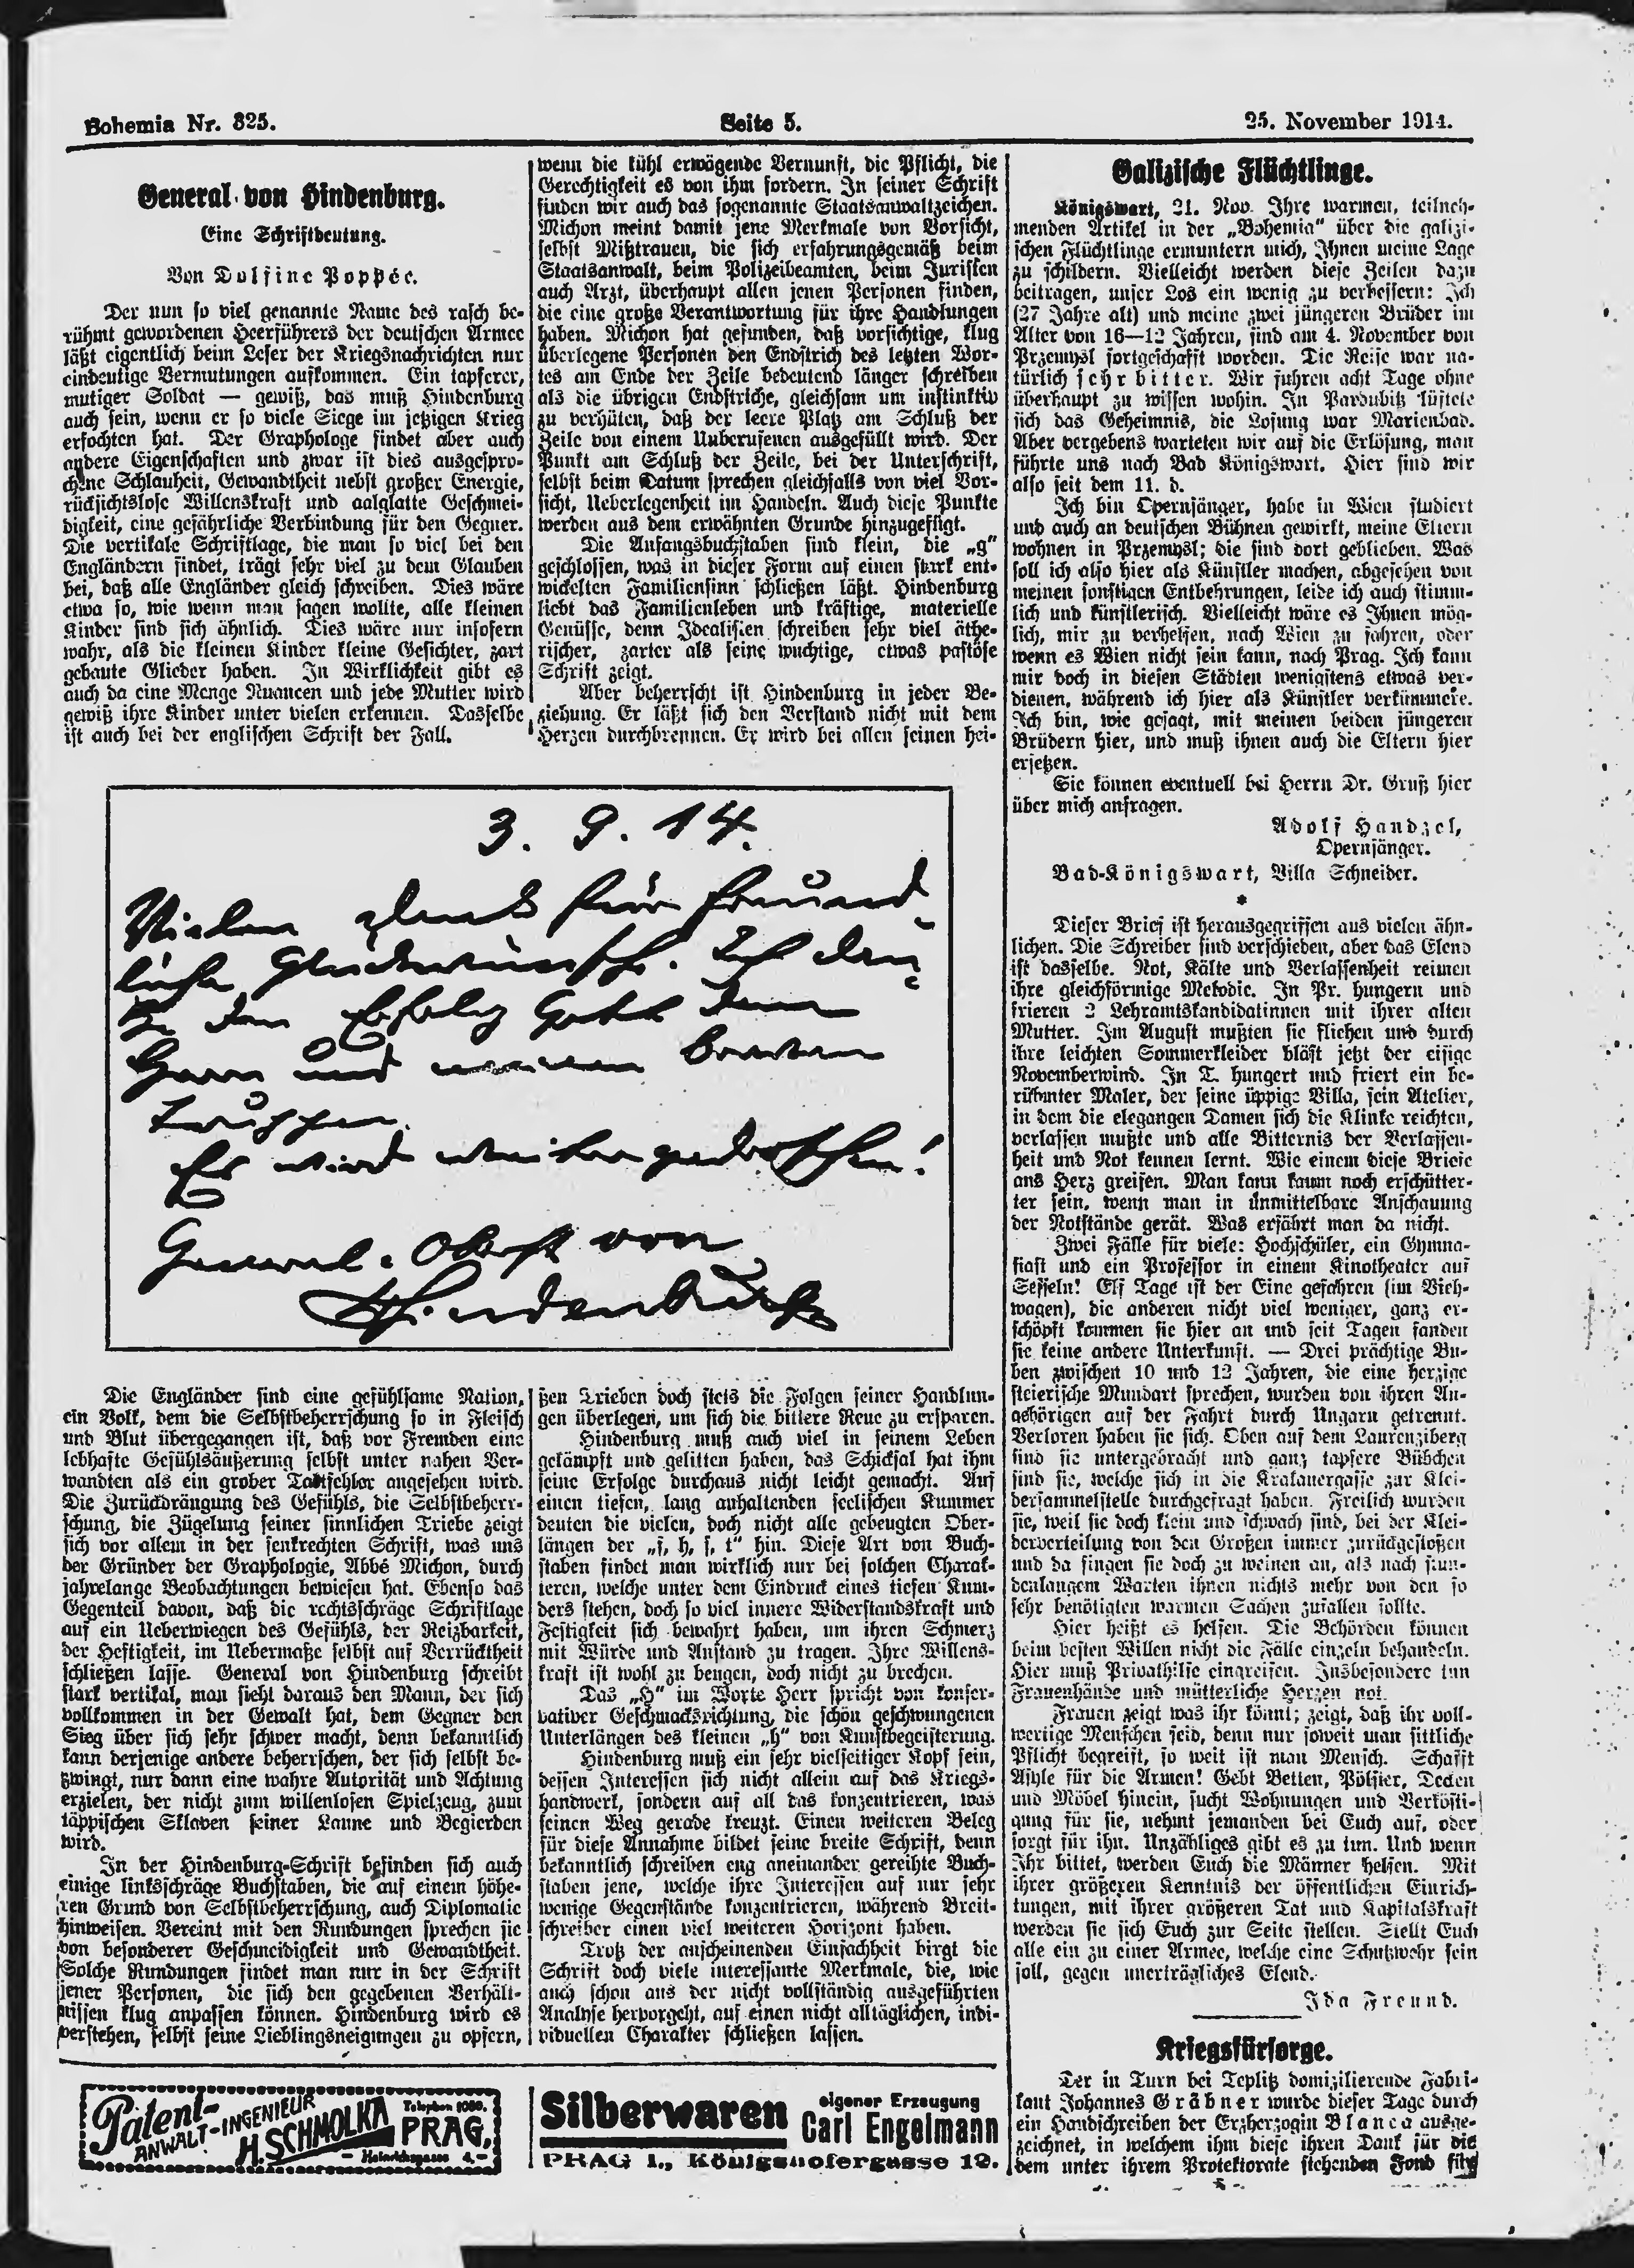 Bohemia Nr. 325.
Seite 5.
25. November 1914.
General von Hindenburg.
Eine Schriftdeutung.
Von Dolfine Poppée.
Der nun so viel genannte Name des rasch be-
rühmt gewordenen Heerführers der deutschen Armee
läßt eigentlich beim Leser der Kriegsnachrichten nur
eindeutige Vermutungen aufkommen. Ein tapferer,
mutiger Soldat — gewiß, das muß Hindenburg
auch sein, wenn er so viele Siege im jetzigen Krieg
erfochten hat. Der Graphologe findet aber auch
andere Eigenschaften und zwar ist dies ausgespro-
chene Schlauheit, Gewandtheit nebst großer Energie,
rücksichtslose Willenskraft und aalglatte Geschmei-
digkeit, eine gefährliche Verbindung für den Gegner.
Die vertikale Schriftlage, die man so viel bei den
Engländern findet, trägt sehr viel zu dem Glauben
bei, daß alle Engländer gleich schreiben. Dies wäre
etwa so, wie wenn man sagen wollte, alle kleinen
Kinder sind sich ähnlich. Dies wäre nur insofern
wahr, als die kleinen Kinder kleine Gesichter, zart
gebaute Glieder haben. In Wirklichkeit gibt es
auch da eine Menge Nuancen und jede Mutter wird
gewiß ihre Kinder unter vielen erkennen. Dasselbe
ist auch bei der englischen Schrift der Fall.
wenn die kühl erwägende Vernunft, die Pflicht, die
Gerechtigkeit es von ihm fordern. In seiner Schrift
finden wir auch das sogenannte Staatsanwaltzeichen.
Michon meint damit jene Merkmale von Vorsicht,
selbst Mißtrauen, die sich erfahrungsgemäß beim
Staatsanwalt, beim Polizeibeamten, beim Juristen
auch Arzt, überhaupt allen jenen Personen finden,
die eine große Verantwortung für ihre Handlungen
haben. Michon hat gefunden, daß vorsichtige, klug
überlegene Personen den Endstrich des letzten Wor-
tes am Ende der Zeile bedeutend länger schreiben
als die übrigen Endstriche, gleichsam um instinktiv
zu verhüten, daß der leere Platz am Schluß der
Zeile von einem Unberufenen ausgefüllt wird. Der
Punkt am Schluß der Zeile, bei der Unterschrift,
selbst beim Datum sprechen gleichfalls von viel Vor-
sicht, Ueberlegenheit im Handeln. Auch diese Punkte
werden aus dem erwähnten Grunde hinzugefügt.
Die Anfangsbuchstaben sind klein, die „g“
geschlossen, was in dieser Form auf einen stark ent-
wickelten Familiensinn schließen läßt. Hindenburg
liebt das Familienleben und kräftige, materielle
Genüsse, denn Idealisten schreiben sehr viel äthe-
rischer, zarter als seine wuchtige, etwas pastöse
Schrift zeigt.
Aber beherrscht ist Hindenburg in jeder Be-
ziehung. Er läßt sich den Verstand nicht mit dem
Herzen durchbrennen. Er wird bei allen seinen hei-
3. 9. 14.
Vielen Dank für freund-
liche Glückwünsche. Ich dan-
ke den Erfolg Gott dem
Herrn und meinen braven
Truppen.
Es wird weiter gedroschen!
General-Oberst von
Hindenburg
Die Engländer sind eine gefühlsame Nation,
ein Volk, dem die Selbstbeherrschung so in Fleisch
und Blut übergegangen ist, daß vor Fremden eine
lebhafte Gefühlsäußerung selbst unter nahen Ver-
wandten als ein grober Taktfehler angesehen wird.
Die Zurückdrängung des Gefühls, die Selbstbeherr-
schung, die Zügelung seiner sinnlichen Triebe zeigt
sich vor allem in der senkrechten Schrift, was uns
der Gründer der Graphologie, Abbé Michon, durch
jahrelange Beobachtungen bewiesen hat. Ebenso das
Gegenteil davon, daß die rechtsschräge Schriftlage
auf ein Ueberwiegen des Gefühls, der Reizbarkeit,
der Heftigkeit, im Uebermaße selbst auf Verrücktheit
schließen lasse. General von Hindenburg schreibt
stark vertikal, man sieht daraus den Mann, der sich
vollkommen in der Gewalt hat, dem Gegner den
Sieg über sich sehr schwer macht, denn bekanntlich
kann derjenige andere beherrschen, der sich selbst be-
zwingt, nur dann eine wahre Autorität und Achtung
erzielen, der nicht zum willenlosen Spielzeug, zum
täppischen Sklaven seiner Laune und Begierden
wird.
In der Hindenburg-Schrift befinden sich auch
einige linksschräge Buchstaben, die auf einem höhe-
ren Grund von Selbstbeherrschung, auch Diplomatie
hinweisen. Vereint mit den Rundungen sprechen sie
von besonderer Geschmeidigkeit und Gewandtheit.
Solche Rundungen findet man nur in der Schrift
jener Personen, die sich den gegebenen Verhält-
nissen klug anpassen können. Hindenburg wird es
verstehen, selbst seine Lieblingsneigungen zu opfern,
ßen Trieben doch stets die Folgen seiner Handlun-
gen überlegen, um sich die bittere Reue zu ersparen.
Hindenburg muß auch viel in seinem Leben
gekämpft und gelitten haben, das Schicksal hat ihm
seine Erfolge durchaus nicht leicht gemacht. Auf
einen tiefen, lang anhaltenden seelischen Kummer
deuten die vielen, doch nicht alle gebeugten Ober-
längen der „f, h, s, t“ hin. Diese Art von Buch-
staben findet man wirklich nur bei solchen Charak-
teren, welche unter dem Eindruck eines tiefen Kum-
mers stehen, doch so viel innere Widerstandskraft und
Festigkeit sich bewahrt haben, um ihren Schmerz
mit Würde und Anstand zu tragen. Ihre Willens-
kraft ist wohl zu beugen, doch nicht zu brechen.
Das „H“ im Worte Herr spricht von konser-
vativer Geschmacksrichtung, die schön geschwungenen
Unterlängen des kleinen „h“ von Kunstbegeisterung.
Hindenburg muß ein sehr vielseitiger Kopf sein,
dessen Interessen sich nicht allein auf das Kriegs-
handwerk, sondern auf all das konzentrieren, was
seinen Weg gerade kreuzt. Einen weiteren Beleg
für diese Annahme bildet seine breite Schrift, denn
bekanntlich schreiben eng aneinander gereihte Buch-
staben jene, welche ihre Interessen auf nur sehr
wenige Gegenstände konzentrieren, während Breit-
schreiber einen viel weiteren Horizont haben.
Trotz der anscheinenden Einfachheit birgt die
Schrift doch viele interessante Merkmale, die, wie
auch schon aus der nicht vollständig ausgeführten
Analyse hervorgeht, auf einen nicht alltäglichen, indi-
viduellen Charakter schließen lassen.
Patent-
ANWALT-INGENIEUR
H. SCHMOLKA
Telephon 1080.
PRAG,
Heinrichsgasse 4.
Silberwaren
eigener Erzeugung
Carl Engelmann
PRAG I., Königshofergasse 12.
Galizische Flüchtlinge.
Königswart, 21. Nov. Ihre warmen, teilneh-
menden Artikel in der „Bohemia“ über die galizi-
schen Flüchtlinge ermuntern mich, Ihnen meine Lage
zu schildern. Vielleicht werden diese Zeilen dazu
beitragen, unser Los ein wenig zu verbessern: Ich
(27 Jahre alt) und meine zwei jüngeren Brüder im
Alter von 16—12 Jahren, sind am 4. November von
Przemysl fortgeschafft worden. Die Reise war na-
türlich sehr bitter. Wir fuhren acht Tage ohne
überhaupt zu wissen wohin. In Pardubitz lüftete
sich das Geheimnis, die Losung war Marienbad.
Aber vergebens warteten wir auf die Erlösung, man
führte uns nach Bad Königswart. Hier sind wir
also seit dem 11. d.
Ich bin Opernsänger, habe in Wien studiert
und auch an deutschen Bühnen gewirkt, meine Eltern
wohnen in Przemysl; die sind dort geblieben. Was
soll ich also hier als Künstler machen, abgesehen von
meinen sonstigen Entbehrungen, leide ich auch stimm-
lich und künstlerisch. Vielleicht wäre es Ihnen mög-
lich, mir zu verhelfen, nach Wien zu fahren, oder
wenn es Wien nicht sein kann, nach Prag. Ich kann
mir doch in diesen Städten wenigstens etwas ver-
dienen, während ich hier als Künstler verkümmere.
Ich bin, wie gesagt, mit meinen beiden jüngeren
Brüdern hier, und muß ihnen auch die Eltern hier
ersetzen.
Sie können eventuell bei Herrn Dr. Gruß hier
über mich anfragen.
Adolf Handzel,
Opernsänger.
Bad-Königswart, Villa Schneider.
*
Dieser Brief ist herausgegriffen aus vielen ähn-
lichen. Die Schreiber sind verschieben, aber das Elend
ist dasselbe. Not, Kälte und Verlassenheit reimen
ihre gleichförmige Melodie. In Pr. hungern und
frieren 2 Lehramtskandidatinnen mit ihrer alten
Mutter. Im August mußten sie fliehen und durch
ihre leichten Sommerkleider bläst jetzt der eisige
Novemberwind. In T. hungert und friert ein be-
rühmter Maler, der seine üppige Villa, sein Atelier,
in dem die elegangen Damen sich die Klinke reichten,
verlassen mußte und alle Bitternis der Verlassen-
heit und Not kennen lernt. Wie einem diese Briefe
ans Herz greifen. Man kann kaum noch erschütter-
ter sein, wenn man in unmittelbare Anschauung
der Notstände gerät. Was erfährt man da nicht.
Zwei Fälle für viele: Hochschüler, ein Gymna-
siast und ein Professor in einem Kinotheater auf
Sesseln! Elf Tage ist der Eine gefahren (im Vieh-
wagen), die anderen nicht viel weniger, ganz er-
schöpft kommen sie hier an und seit Tagen fanden
sie keine andere Unterkunft. — Drei prächtige Bu-
ben zwischen 10 und 12 Jahren, die eine herzige
steierische Mundart sprechen, wurden von ihren An-
gehörigen auf der Fahrt durch Ungarn getrennt.
Verloren haben sie sich. Oben auf dem Laurenziberg
sind sie untergebracht und ganz tapfere Bübchen
sind sie, welche sich in die Krakauergasse zur Klei-
dersammelstelle durchgefragt haben. Freilich wurden
sie, weil sie doch klein und schwach sind, bei der Klei-
derverteilung von den Großen immer zurückgestoßen
und da fingen sie doch zu weinen an, als nach stun-
denlangem Warten ihnen nichts mehr von den so
sehr benötigten warmen Sachen zufallen sollte.
Hier heißt es helfen. Die Behörden können
beim besten Willen nicht die Fälle einzeln behandeln.
Hier muß Privathilfe eingreifen. Insbesondere tun
Frauenhände und mütterliche Herzen not.
Frauen zeigt was ihr könnt; zeigt, daß ihr voll-
wertige Menschen seid, denn nur soweit man sittliche
Pflicht begreift, so weit ist man Mensch. Schafft
Asyle für die Armen! Gebt Betten, Pölster, Decken
und Möbel hinein, sucht Wohnungen und Verkösti-
gung für sie, nehmt jemanden bei Euch auf, oder
sorgt für ihn. Unzähliges gibt es zu tun. Und wenn
Ihr bittet, werden Euch die Männer helfen. Mit
ihrer größeren Kenntnis der öffentlichen Einrich-
tungen, mit ihrer größeren Tat und Kapitalskraft
werden sie sich Euch zur Seite stellen. Stellt Euch
alle ein zu einer Armee, welche eine Schutzwehr sein
soll, gegen unerträgliches Elend.
Ida Freund.
Kriegsfürsorge.
Der in Turn bei Teplitz domizilierende Fabri-
kant Johannes Gräbner wurde dieser Tage durch
ein Handschreiben der Erzherzogin Blanca ausge-
zeichnet, in welchem ihm diese ihren Dank für die
dem unter ihrem Protektorate stehenden Fond für